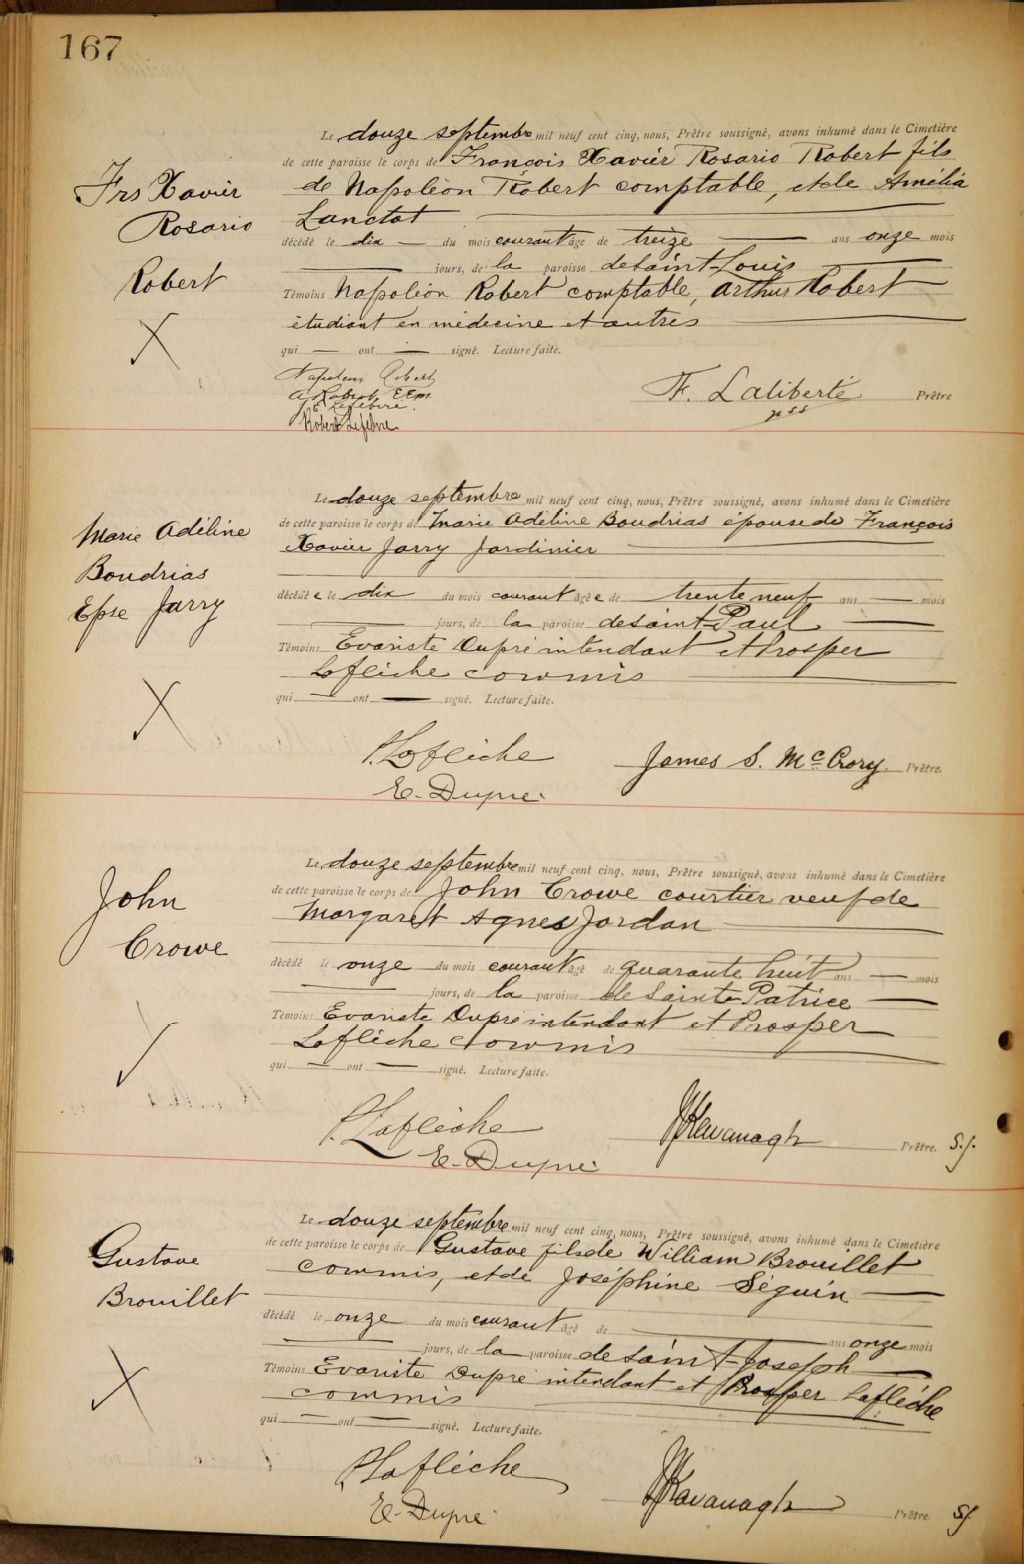 167
Frs Xavier
Rosario
Robert
Le douze septembre mil neuf cent cinq, nous, Prêtre soussigné, avons inhumé dans le Cimetière
de cette paroisse le corps de François Xavier Rosario Robert fils
de Napoléon Robert comptable, et de Amélia
Lanctot
décédé le dix du mois courant âgé de treize ans onze mois
jours, de la paroisse de Saint-Louis
Témoins Napoléon Robert comptable, Arthur Robert
étudiant en médecine et autres
qui ont signé. Lecture faite.
Napoleon Robert
A. Robert E.E.M.
Lefebvre
Robert Lefebvre
F. Laliberté Prêtre
pss
Marie Adéline
Boudrias
Epse Jarry
Le douze septembre mil neuf cent cinq, nous, Prêtre soussigné, avons inhumé dans le Cimetière
de cette paroisse le corps de Marie Adéline Boudrias épouse de François
Xavier Jarry Jardinier
décédée le dix du mois courant âgée de trente neuf ans mois
jours, de la paroisse de Saint-Paul
Témoins Evariste Dupré intendant et Prosper
Laflèche commis
qui ont signé. Lecture faite.
P. Laflèche
E. Dupré
James S. McCrory Prêtre.
John
Crowe
Le douze septembre mil neuf cent cinq, nous, Prêtre soussigné, avons inhumé dans le Cimetière
de cette paroisse le corps de John Crowe courtier veuf de
Margaret Agnes Jordan
décédé le onze du mois courant âgé de quarante huit ans mois
jours, de la paroisse de Sainte-Patrice
Témoins Evariste Dupré intendant et Prosper
Laflèche commis
qui ont signé. Lecture faite.
P. Laflèche
E. Dupré
Kavanagh Prêtre. S.J.
Gustave
Brouillet
Le douze septembre mil neuf cent cinq, nous, Prêtre soussigné, avons inhumé dans le Cimetière
de cette paroisse le corps de Gustave fils de William Brouillet
commis, et de Joséphine Séguin
décédé le onze du mois courant âgé de ans onze mois
jours, de la paroisse de Saint-Joseph
Témoins Evariste Dupré intendant et Prosper Laflèche
commis
qui ont signé. Lecture faite.
P. Laflèche
E. Dupré
Kavanagh Prêtre. SJ